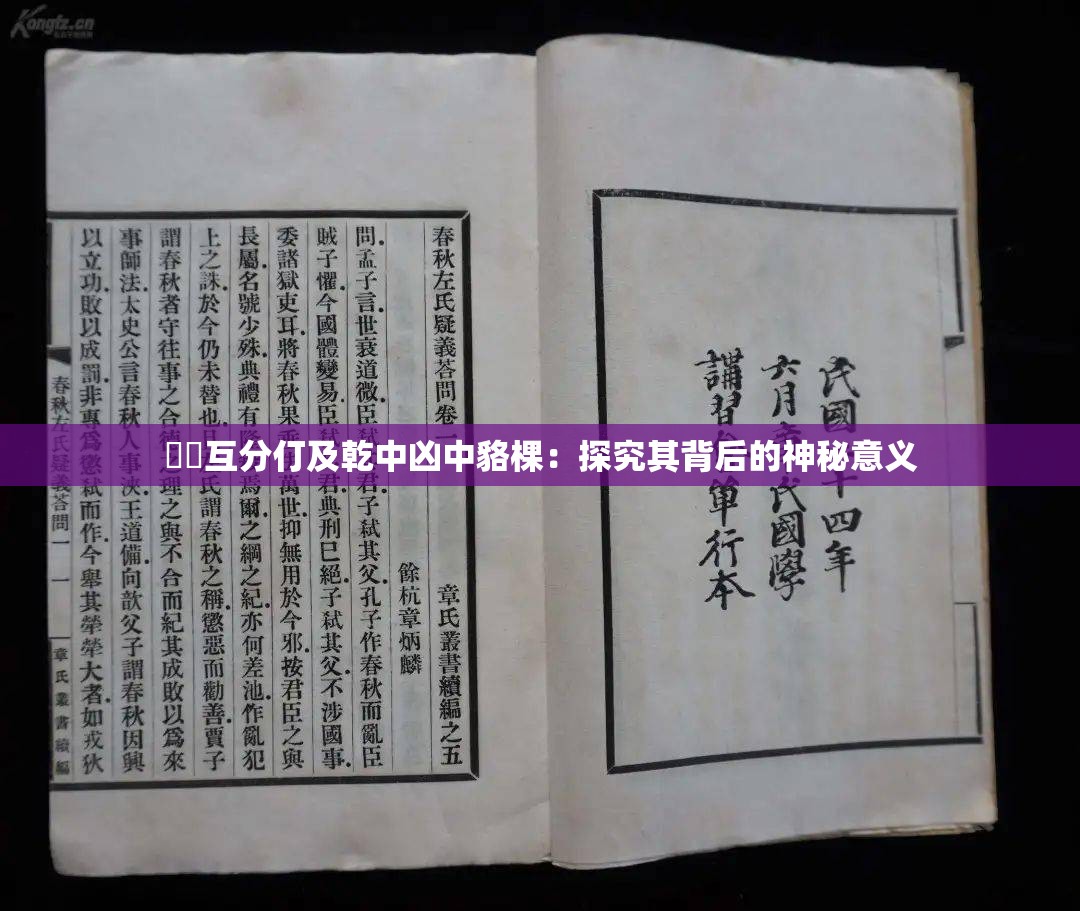 Kongtz.cn
互分仃及乾中凶中貉棵：探究其背后的神秘意义
民國十四年
六月氏國學
講習單行本
春秋左氏疑義荅問卷一 章氏叢書續編之五
餘杭章炳麟
問.孟子言.世衰道微.臣弑其君.子弑其父.孔子作春秋而亂臣
賊子懼.今國體變易.臣弑君.典刑巳絕.子弑其父.不涉國事.
委諸獄吏耳.將春秋果萬世.抑無用於今邪.按君臣之與
長屬.名號少殊.典禮有焉爾.之綱之紀.亦何差池.作亂犯
上之誅.於今仍未替也.氏謂春秋之稱.懲惡而勸善.賈子
謂春秋者守往事之合德之理之與不合而紀其成敗以爲來
事師法.太史公言春秋人事浹.王道備.向歆父子謂春秋因興
以立功.敗以成罰.非專爲懲弑而作.今舉其犖犖大者.如戎狄
春秋左氏疑義荅問一 一 章氏叢書續編